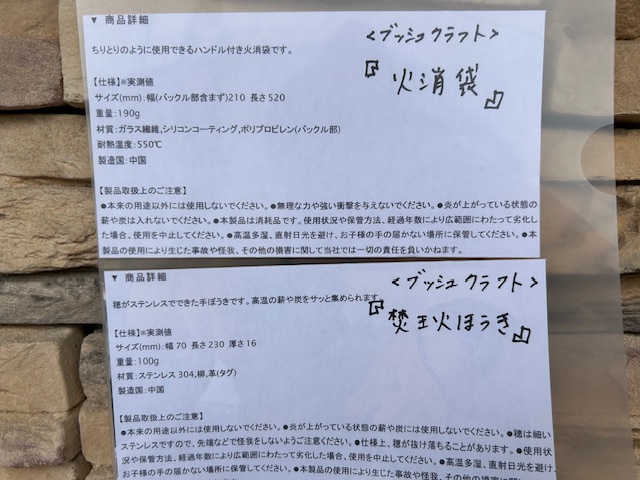 ▼ 商品詳細
<ブッシュクラフト>
『火消袋』
ちりとりのように使用できるハンドル付き火消袋です。
【仕様】※実測値
サイズ(mm):幅(バックル部含まず)210 長さ520
重量:190g
材質:ガラス繊維,シリコンコーティング,ポリプロピレン(バックル部)
耐熱温度:550℃
製造国:中国
【製品取扱上のご注意】
●本来の用途以外には使用しないでください。●無理な力や強い衝撃を与えないでください。●炎が上がっている状態の
薪や炭は入れないでください。●本製品は消耗品です。使用状況や保管方法、経過年数により広範囲にわたって劣化し
た場合、使用を中止してください。●高温多湿、直射日光を避け、お子様の手の届かない場所に保管してください。●本
製品の使用により生じた事故や怪我、その他の損害に関して当社では一切の責任を負いかねます。
▼ 商品詳細
<ブッシュクラフト>
『焚き火ほうき』
穂がステンレスでできた手ぼうきです。高温の薪や炭をサッと集められます
【仕様】※実測値
サイズ(mm):幅70 長さ230 厚さ16
重量:100g
材質:ステンレス304,柳,革(タグ)
製造国:中国
【製品取扱上のご注意】
●本来の用途以外には使用しないでください。●炎が上がっている状態の薪や炭には使用しないでください。●穂は細い
ステンレスですので、先端などで怪我をしないようご注意ください。●仕様上、穂が抜け落ちることがあります。●使用状
況や保管方法、経過年数により広範囲にわたって劣化した場合、使用を中止してください。●高温多湿、直射日光を避け、
お子様の手の届かない場所に保管してください。●本製品の使用により生じた事故や怪我、その他の損害に関し